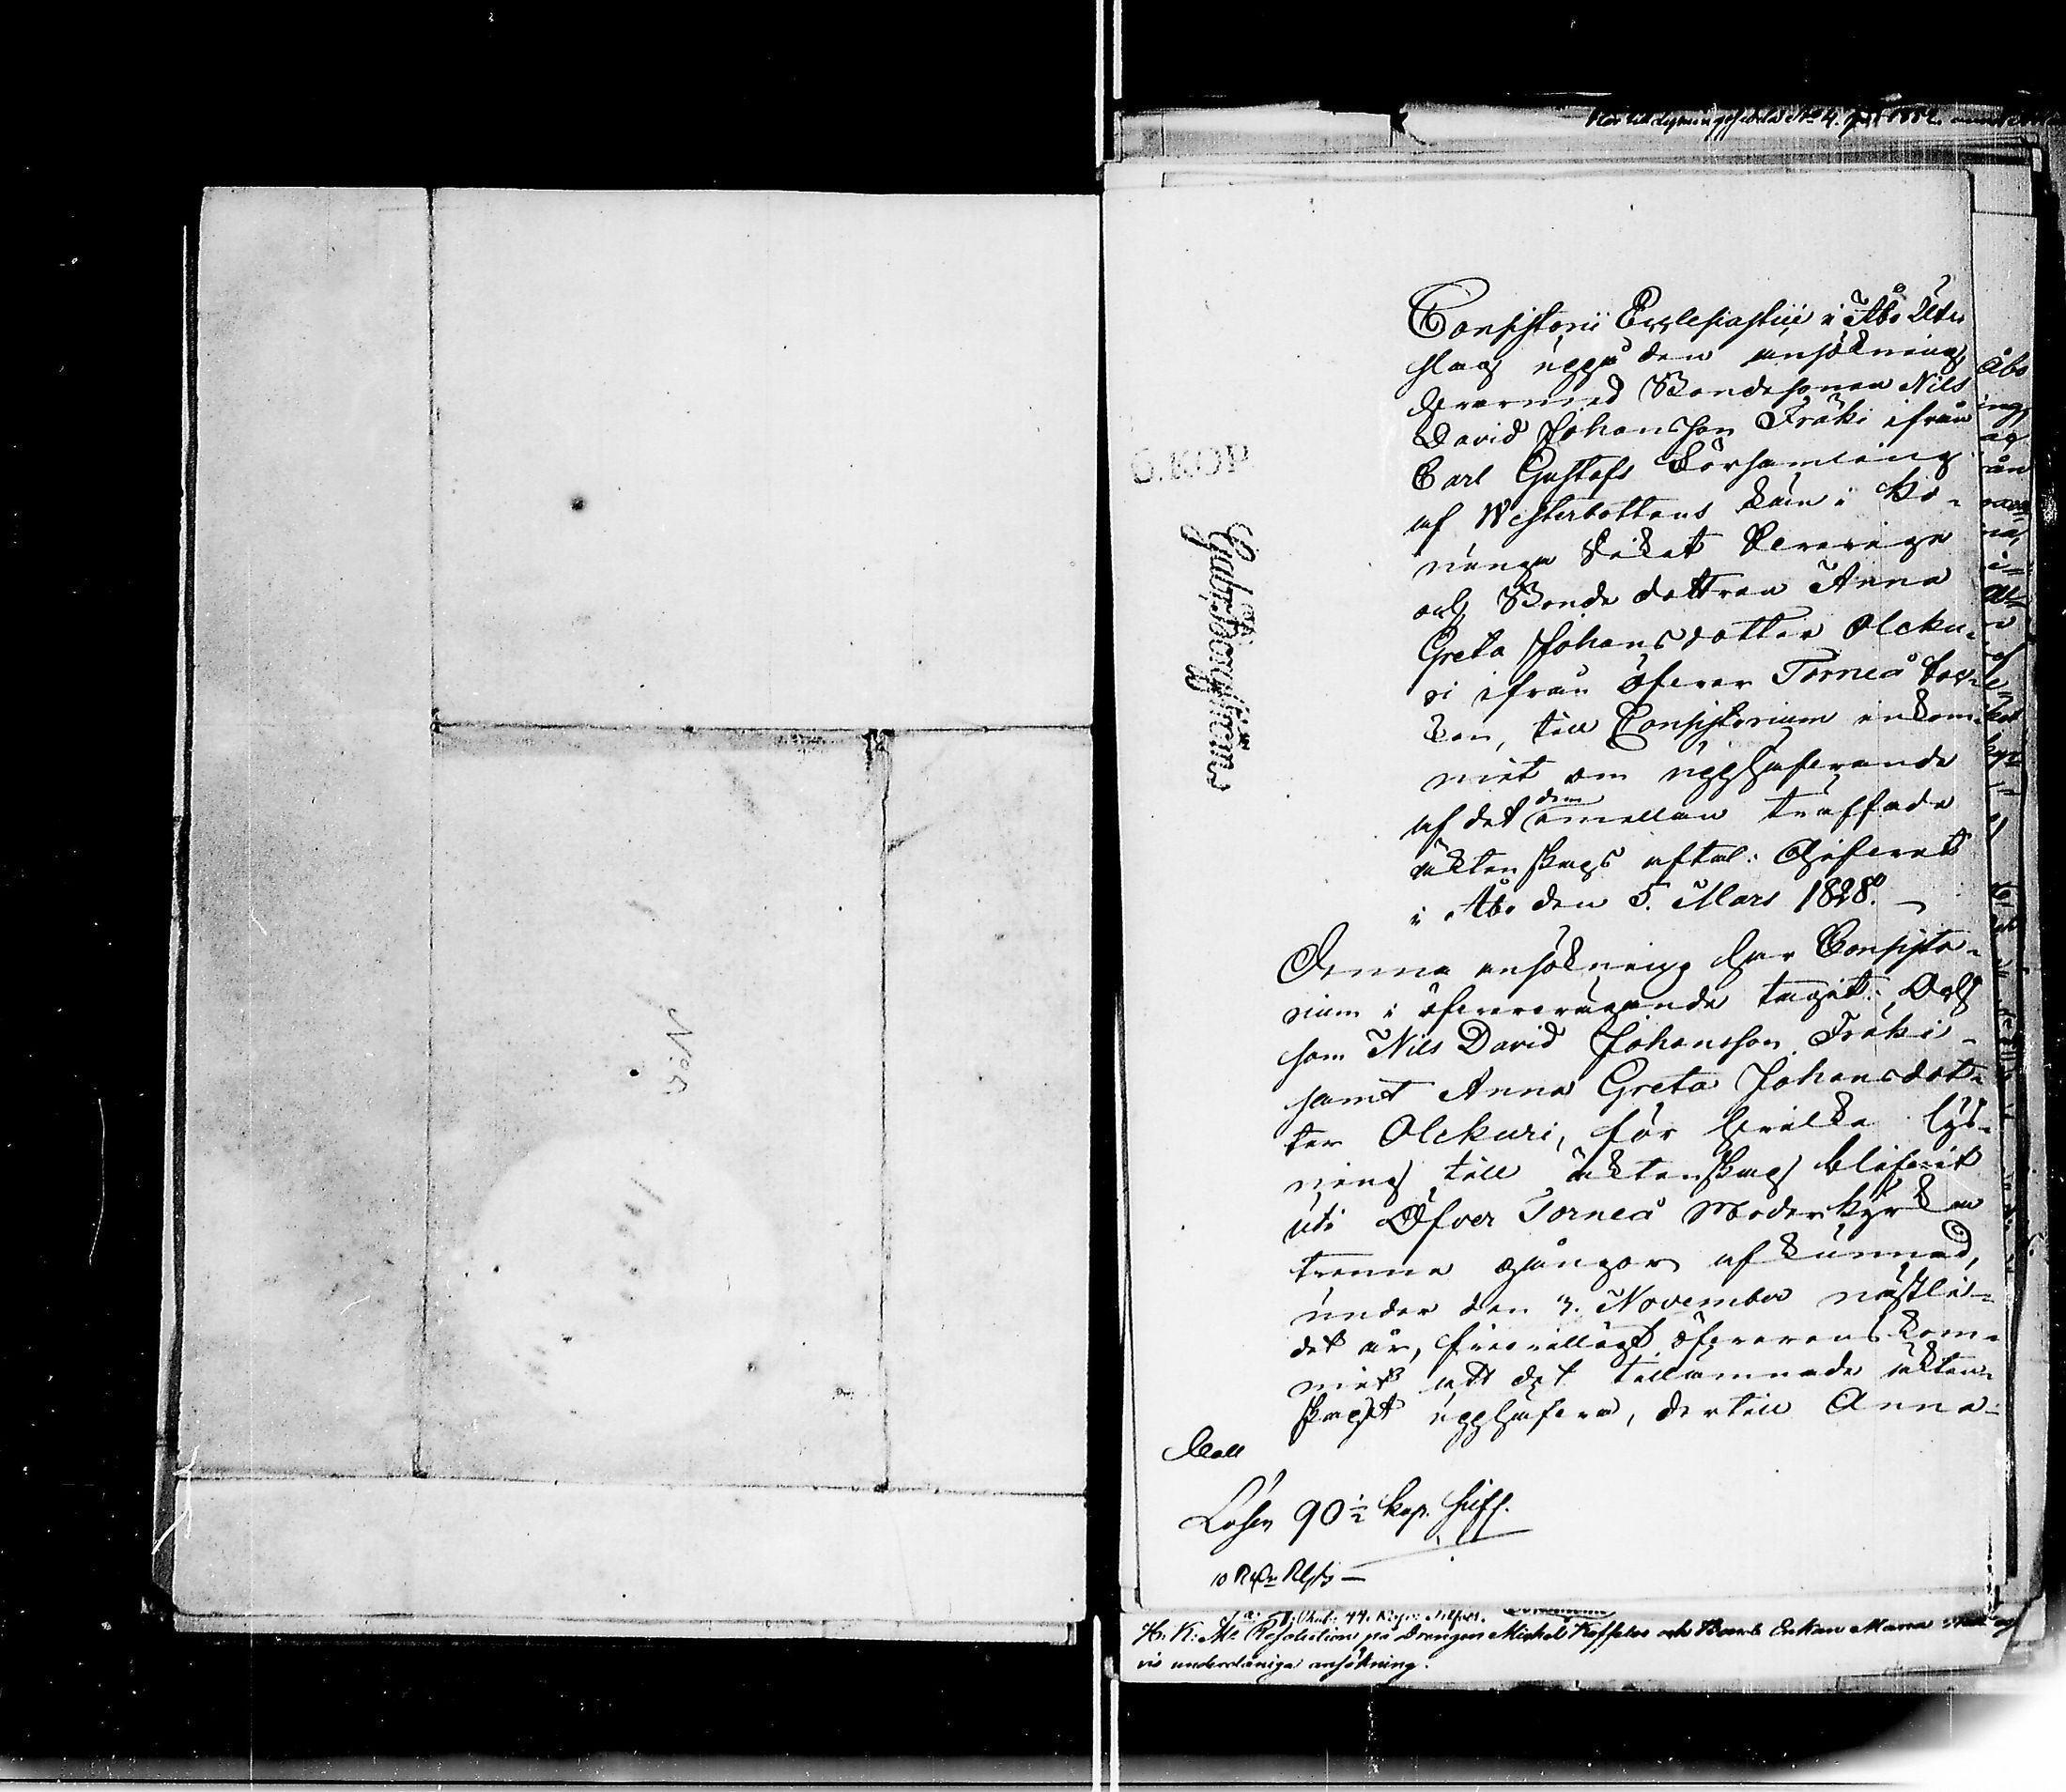 Consistorii Ecclesiastici i Åbo Ut-
slag uppå den ansökning
hvarmed Bondesonen Nils
David Johansson Fräki ifrån
Carl Gustafs Församling
af Westerbottens Län i Ko-
nunga Riket Sverige
och Bonde dottren Anna
Greta Johansdotter Olcku-
ri ifrån öfver Torneå Sock-
en, till Consistorium inkom-
mit om upphäfvande
af det dem emellan träffade
äktenskaps aftal. Gifvet
i Åbo den 5. Mars 1828.
Denna ansökning har Consisto-
rium i öfvervägande tagit. Och
som Nils David Johansson Fräki
samt Anna Greta Johansdot-
ter Olckuri, för hvilka lys-
ning till äktenskap blifvit
uti Öfver Torneå Moderkyrka
trenne gångor afkunnad,
under den 3. November nästle-
det år, frivilligt öfverenskom-
mit att det tillämnade äkten-
skapet upphäfva, dertill Anna
Coll
Lösen 90½ kop. silf.
10 Rbr Rgs
H. K. Mts Resolution på Drengen Michel och Enkan Maria
underdåniga ansökning.